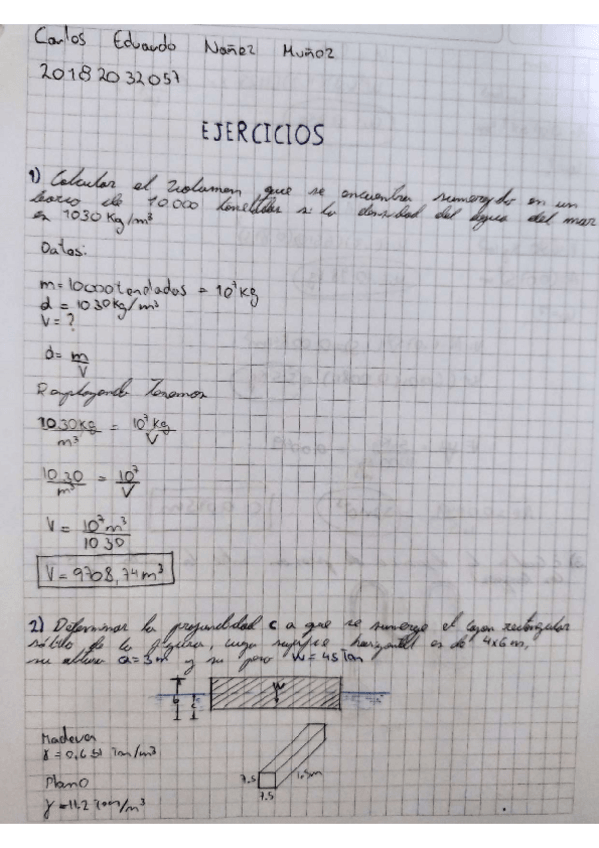 Carlos Eduardo Nañez Muñoz
20182032057
EJERCICIOS
1) Calcular el volumen que se encuentra sumergido en un
barco de 10.000 toneladas si la densidad del agua del mar
es 1030 Kg/m³
Datos:
m = 10000 toneladas = 10⁷ Kg
d = 1030 Kg/m³
V = ?
d = m/V
Remplazando tenemos
1030 kg/m³ = 10⁷ Kg/V
1030/m³ = 10⁷/V
V = 10⁷ m³/1030
V = 9708,74 m³
2) Determinar la profundidad c a que se sumerge el cajon rectangular
solido de la figura, cuya superficie horizontal es de 4x6 m,
su altura a = 3 m y su peso W = 45 Ton
W
b
c
Madera
γ = 0,651 Ton/m³
7.5
1.5m
7.5
Plomo
γ = 11.2 Ton/m³